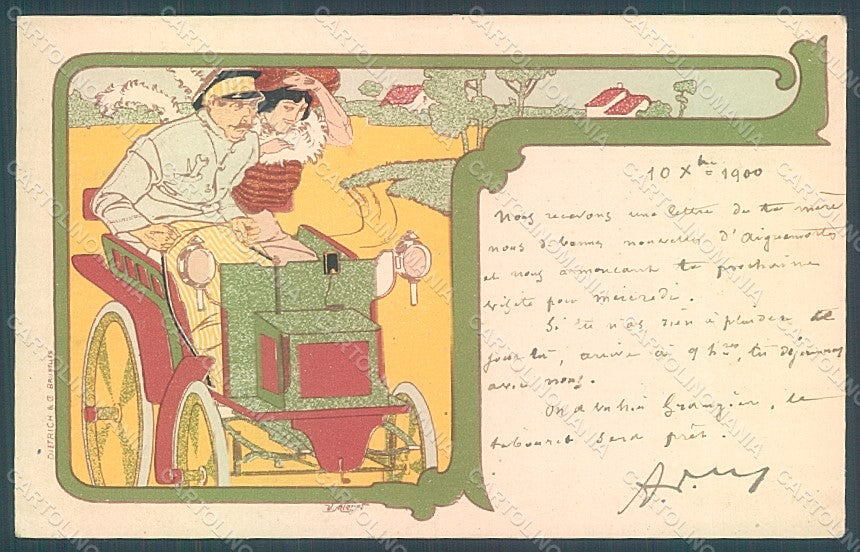 10 Xbre 1900
Nous recevons une lettre de ta mère
nous d. bonnes nouvelles d'Aiguesmortes
et nous annonçant ta prochaine
visite pour mercredi.
Si tu n'as rien à plaider, ce
jour là, arrive à 9 hres, tu déjeuneras
avec nous.
On a Grangier, le
tabouret sera prêt.
DIETRICH & C. BRUXELLES
V. Mignot
CARTOLINOMANIA